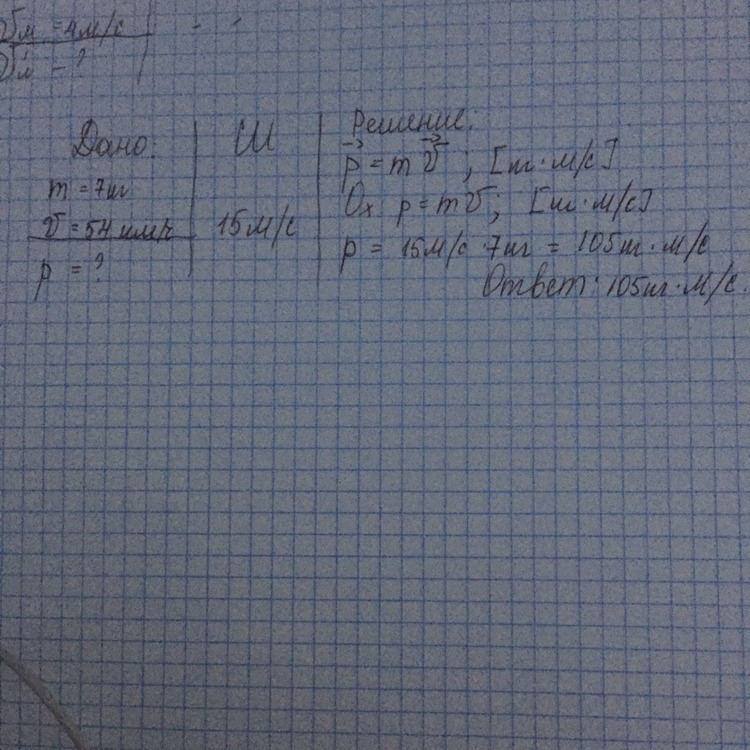 υм = 4м/с
υм - ?
Дано:
m = 7кг
υ = 54 км/ч
p = ?
СИ
15м/с
Решение:
p⃗ = m υ⃗ ; [кг·м/с]
Ox p = mυ; [кг·м/с]
p = 15м/с · 7кг = 105кг·м/с
Ответ: 105кг·м/с.